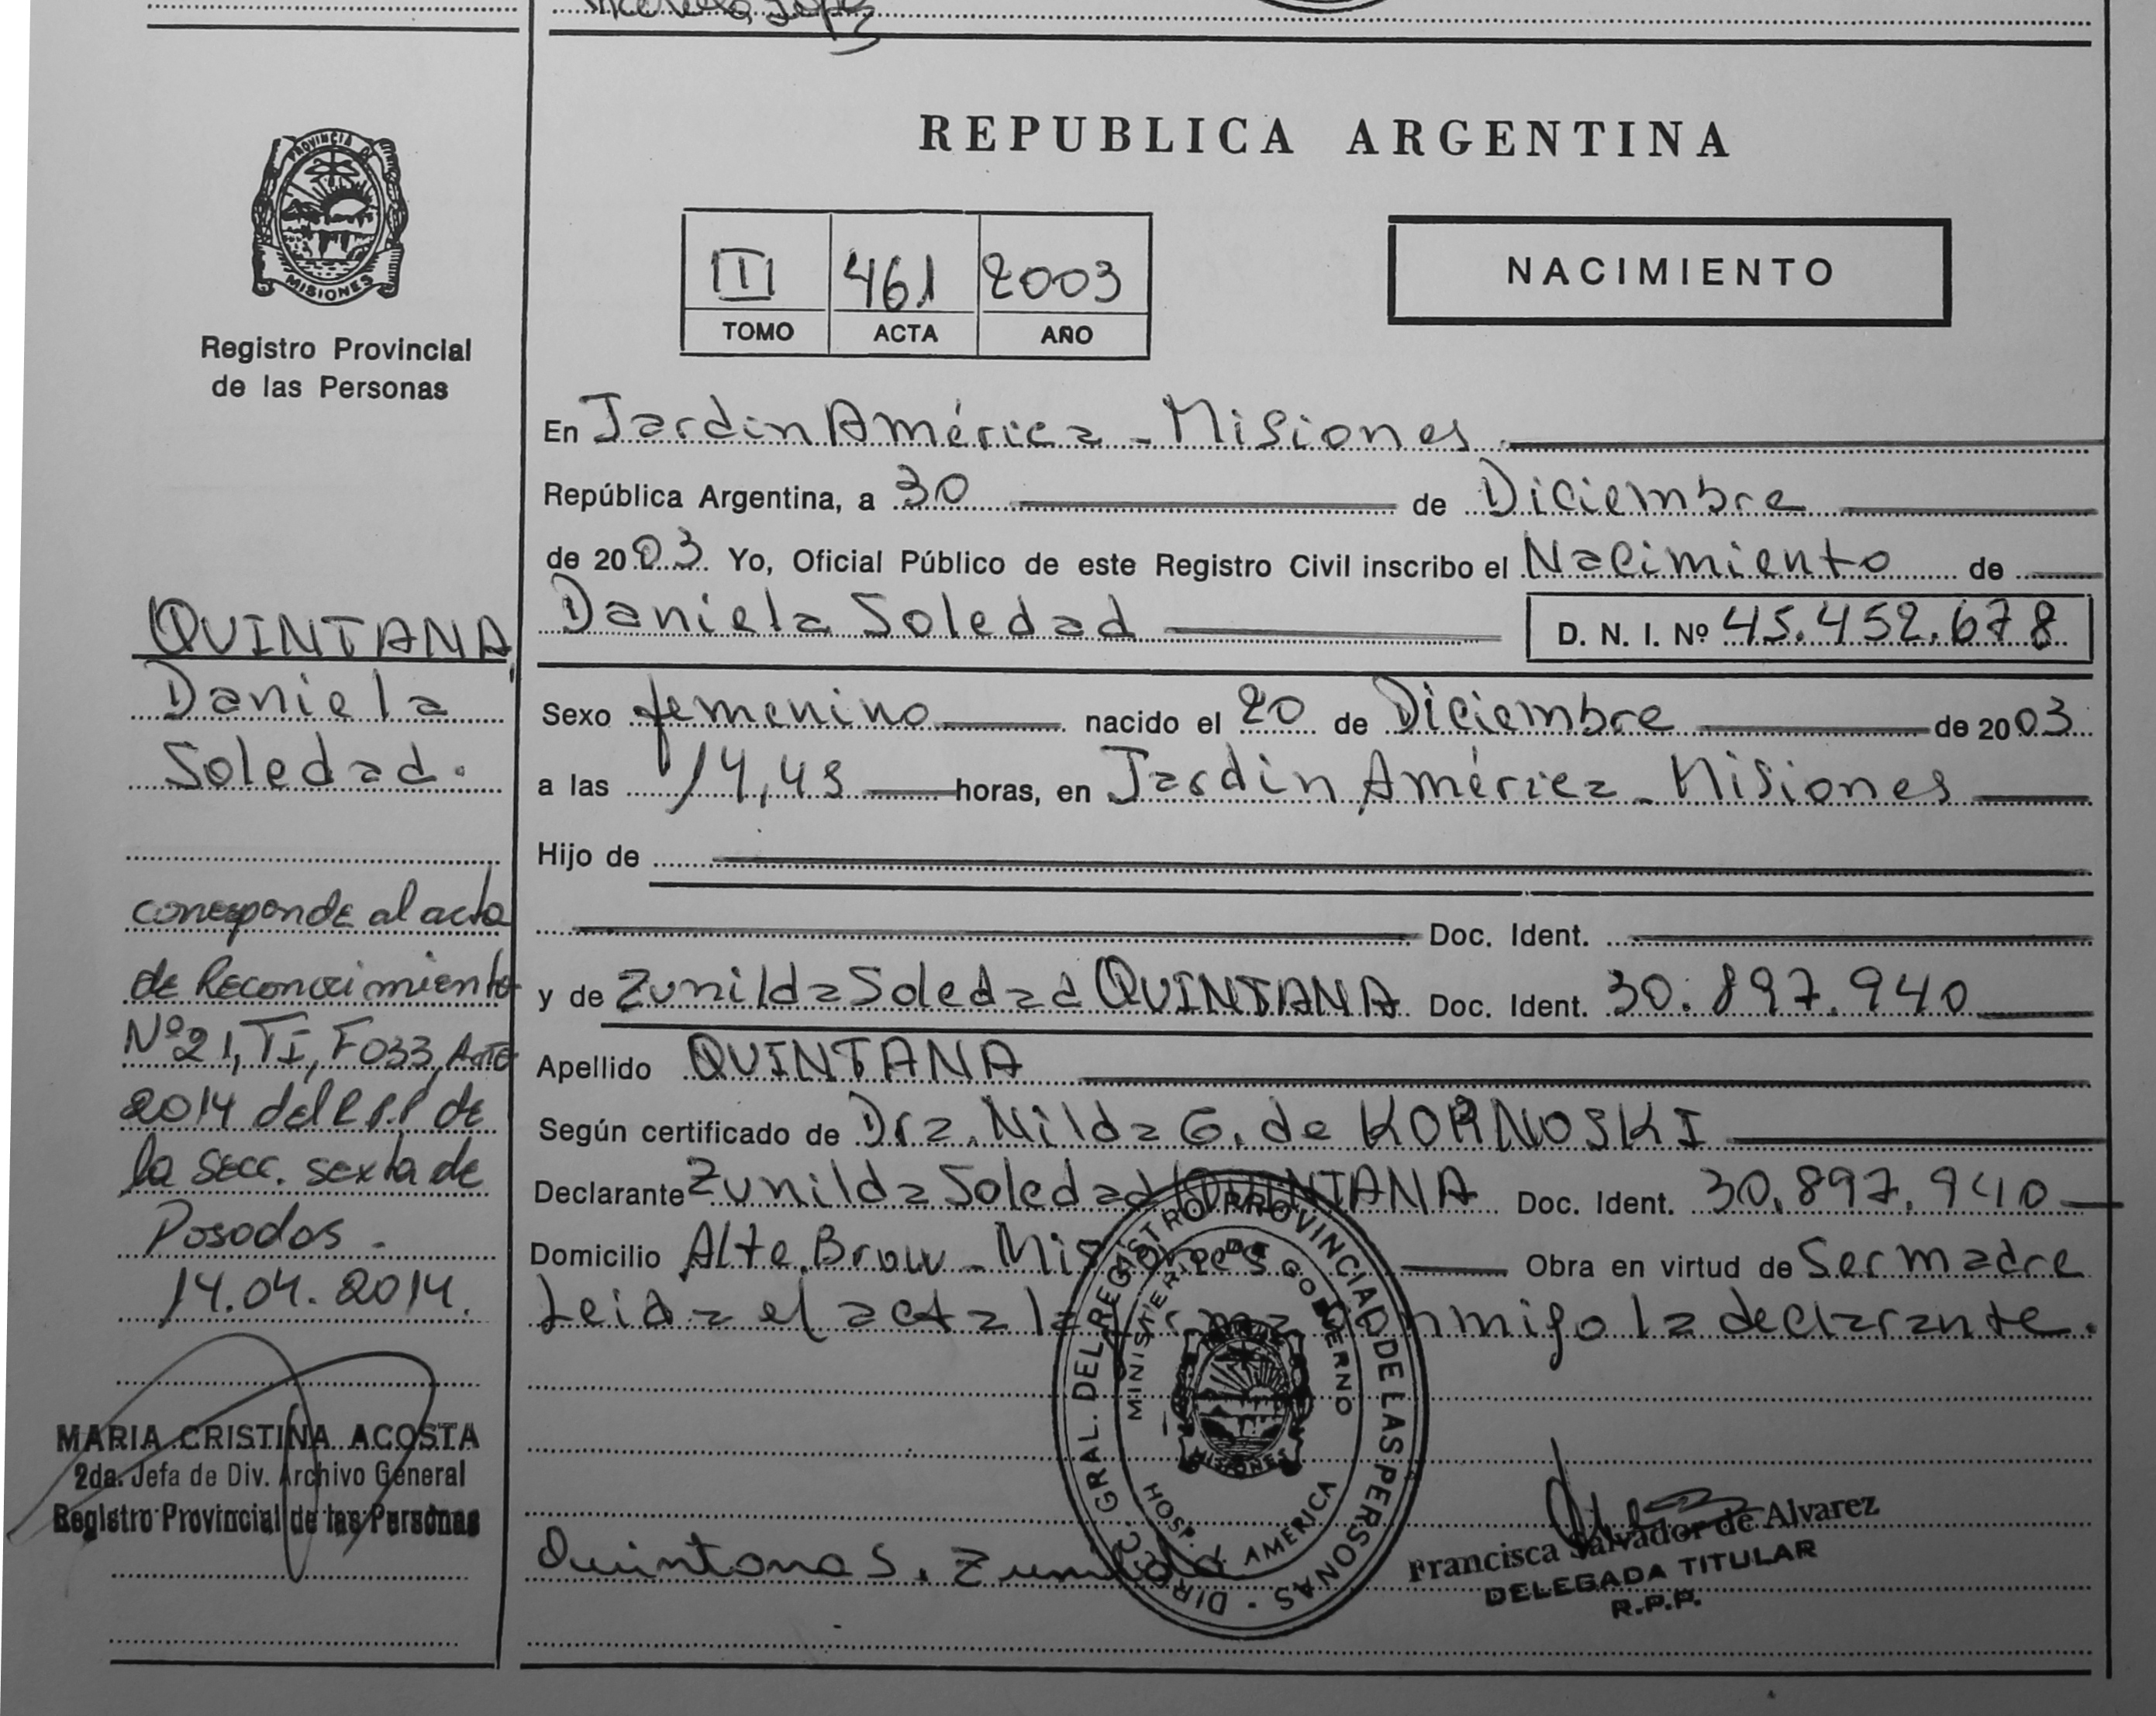 PROVINCIA DE
MISIONES
Registro Provincial
de las Personas
QUINTANA,
Daniela
Soledad.
corresponde al acta
de Reconocimiento
Nº21, TI, F033, Año
2014 del R.P.P de
la secc. sexta de
Posadas.
14.04.2014.
MARIA CRISTINA ACOSTA
2da. Jefa de Div. Archivo General
Registro Provincial de las Personas
REPUBLICA ARGENTINA
III 461 2003
TOMO ACTA AÑO
NACIMIENTO
En Jardin América - Misiones
República Argentina, a 30 de Diciembre
de 2003 Yo, Oficial Público de este Registro Civil inscribo el Nacimiento de
Daniela Soledad D. N. I. Nº 45.452.678
Sexo femenino nacido el 20 de Diciembre de 2003
a las 14,45 horas, en Jardin América - Misiones
Hijo de
Doc. Ident.
y de Zunilda Soledad QUINTANA Doc. Ident. 30.897.940
Apellido QUINTANA
Según certificado de Dra. Nilda G. de KORNOSKI
Declarante Zunilda Soledad QUINTANA Doc. Ident. 30.897.940
Domicilio Alte. Brow - Misiones Obra en virtud de Ser madre
Leida el acta la firma conmigo la declarante.
DIR. GRAL. DEL REGISTRO PROVINCIAL DE LAS PERSONAS
MINISTERIO DE GOBIERNO
MISIONES
HOSP. J. AMERICA
Quintana S. Zunilda
Francisca Salvador de Alvarez
DELEGADA TITULAR
R.P.P.